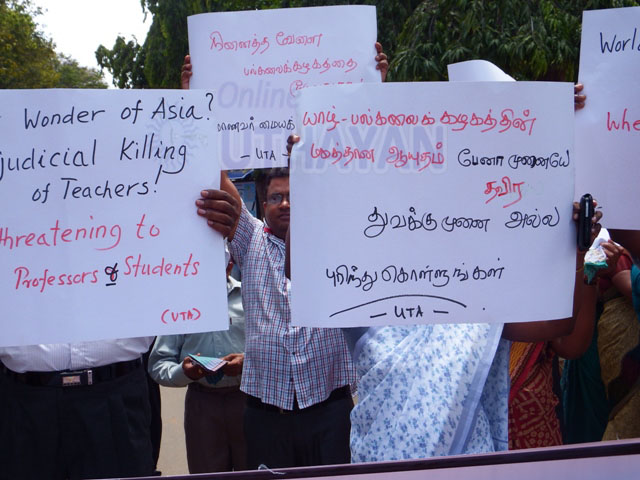 Wonder of Asia?
judicial Killing
of Teachers!
threatening to
Professors & Students
(UTA)
நினைத்த வேளை
பல்கலைக்கழகத்தை
மாணவர் மையக்
- UTA -
Online
UTHAYAN
யாழ் - பல்கலைக் கழகத்தின்
பலத்தான ஆயுதம் பேனா முனையே
தவிர
துவக்கு முனை அல்ல
புரிந்து கொள்ளுங்கள்
- UTA -
World
Whe